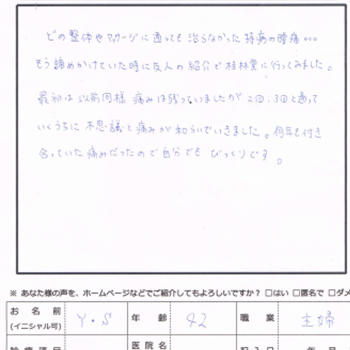 どの整体やマッサージに通っても治らなかった持病の腰痛…
もう諦めかけていた時に友人の紹介で桂林堂に行ってみました。
最初は以前同様痛みは残っていましたが2回、3回と通って
いくうちに不思議と痛みが和らいでいきました。何年も付き
合っていた痛みだったので自分でもびっくりです。
※ あなた様の声を、ホームページなどでご紹介してもよろしいですか? □はい □匿名で □ダメ
お名前 (イニシャル可) Y・S 年齢 42 職業 主婦
医院名